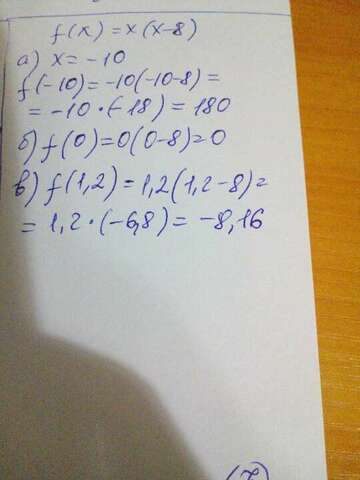 f(x) = x(x-8)
а) x = -10
f(-10) = -10(-10-8) =
= -10·(-18) = 180
б) f(0) = 0(0-8) = 0
в) f(1,2) = 1,2(1,2-8) =
= 1,2·(-6,8) = -8,16